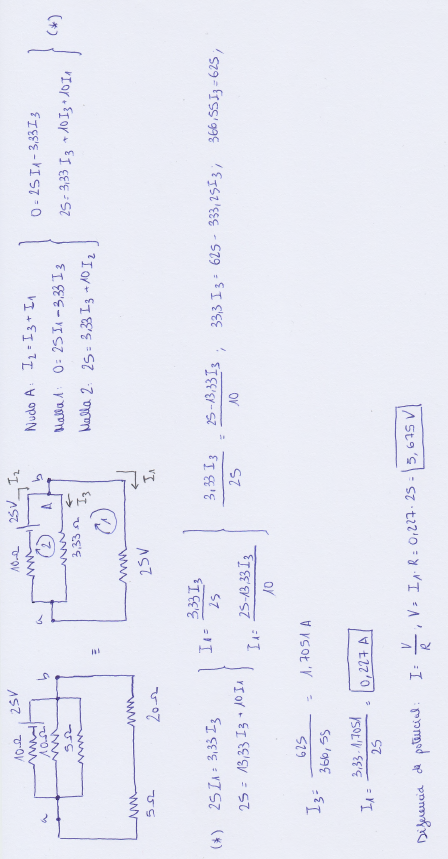 10Ω 25V
10Ω
5Ω
a b
5Ω 20Ω
≡
I₂
10Ω 25V
a 2 A b
3,33Ω I₃
1
25V I₁
Nudo A: I₂ = I₃ + I₁
Malla 1: 0 = 25 I₁ - 3,33 I₃
Malla 2: 25 = 3,33 I₃ + 10 I₂
0 = 25 I₁ - 3,33 I₃
25 = 3,33 I₃ + 10 I₃ + 10 I₁ (*)
(*) 25 I₁ = 3,33 I₃
25 = 13,33 I₃ + 10 I₁
I₁ = 3,33 I₃ / 25
I₁ = 25-13,33 I₃ / 10
3,33 I₃ / 25 = 25-13,33 I₃ / 10 ; 33,3 I₃ = 625 - 333,25 I₃ ; 366,55 I₃ = 625 ;
I₃ = 625 / 366,55 = 1,7051 A
I₁ = 3,33·1,7051 / 25 = 0,227 A
Diferencia de potencial: I = V / R , V = I₁ · R = 0,227 · 25 = 5,675 V